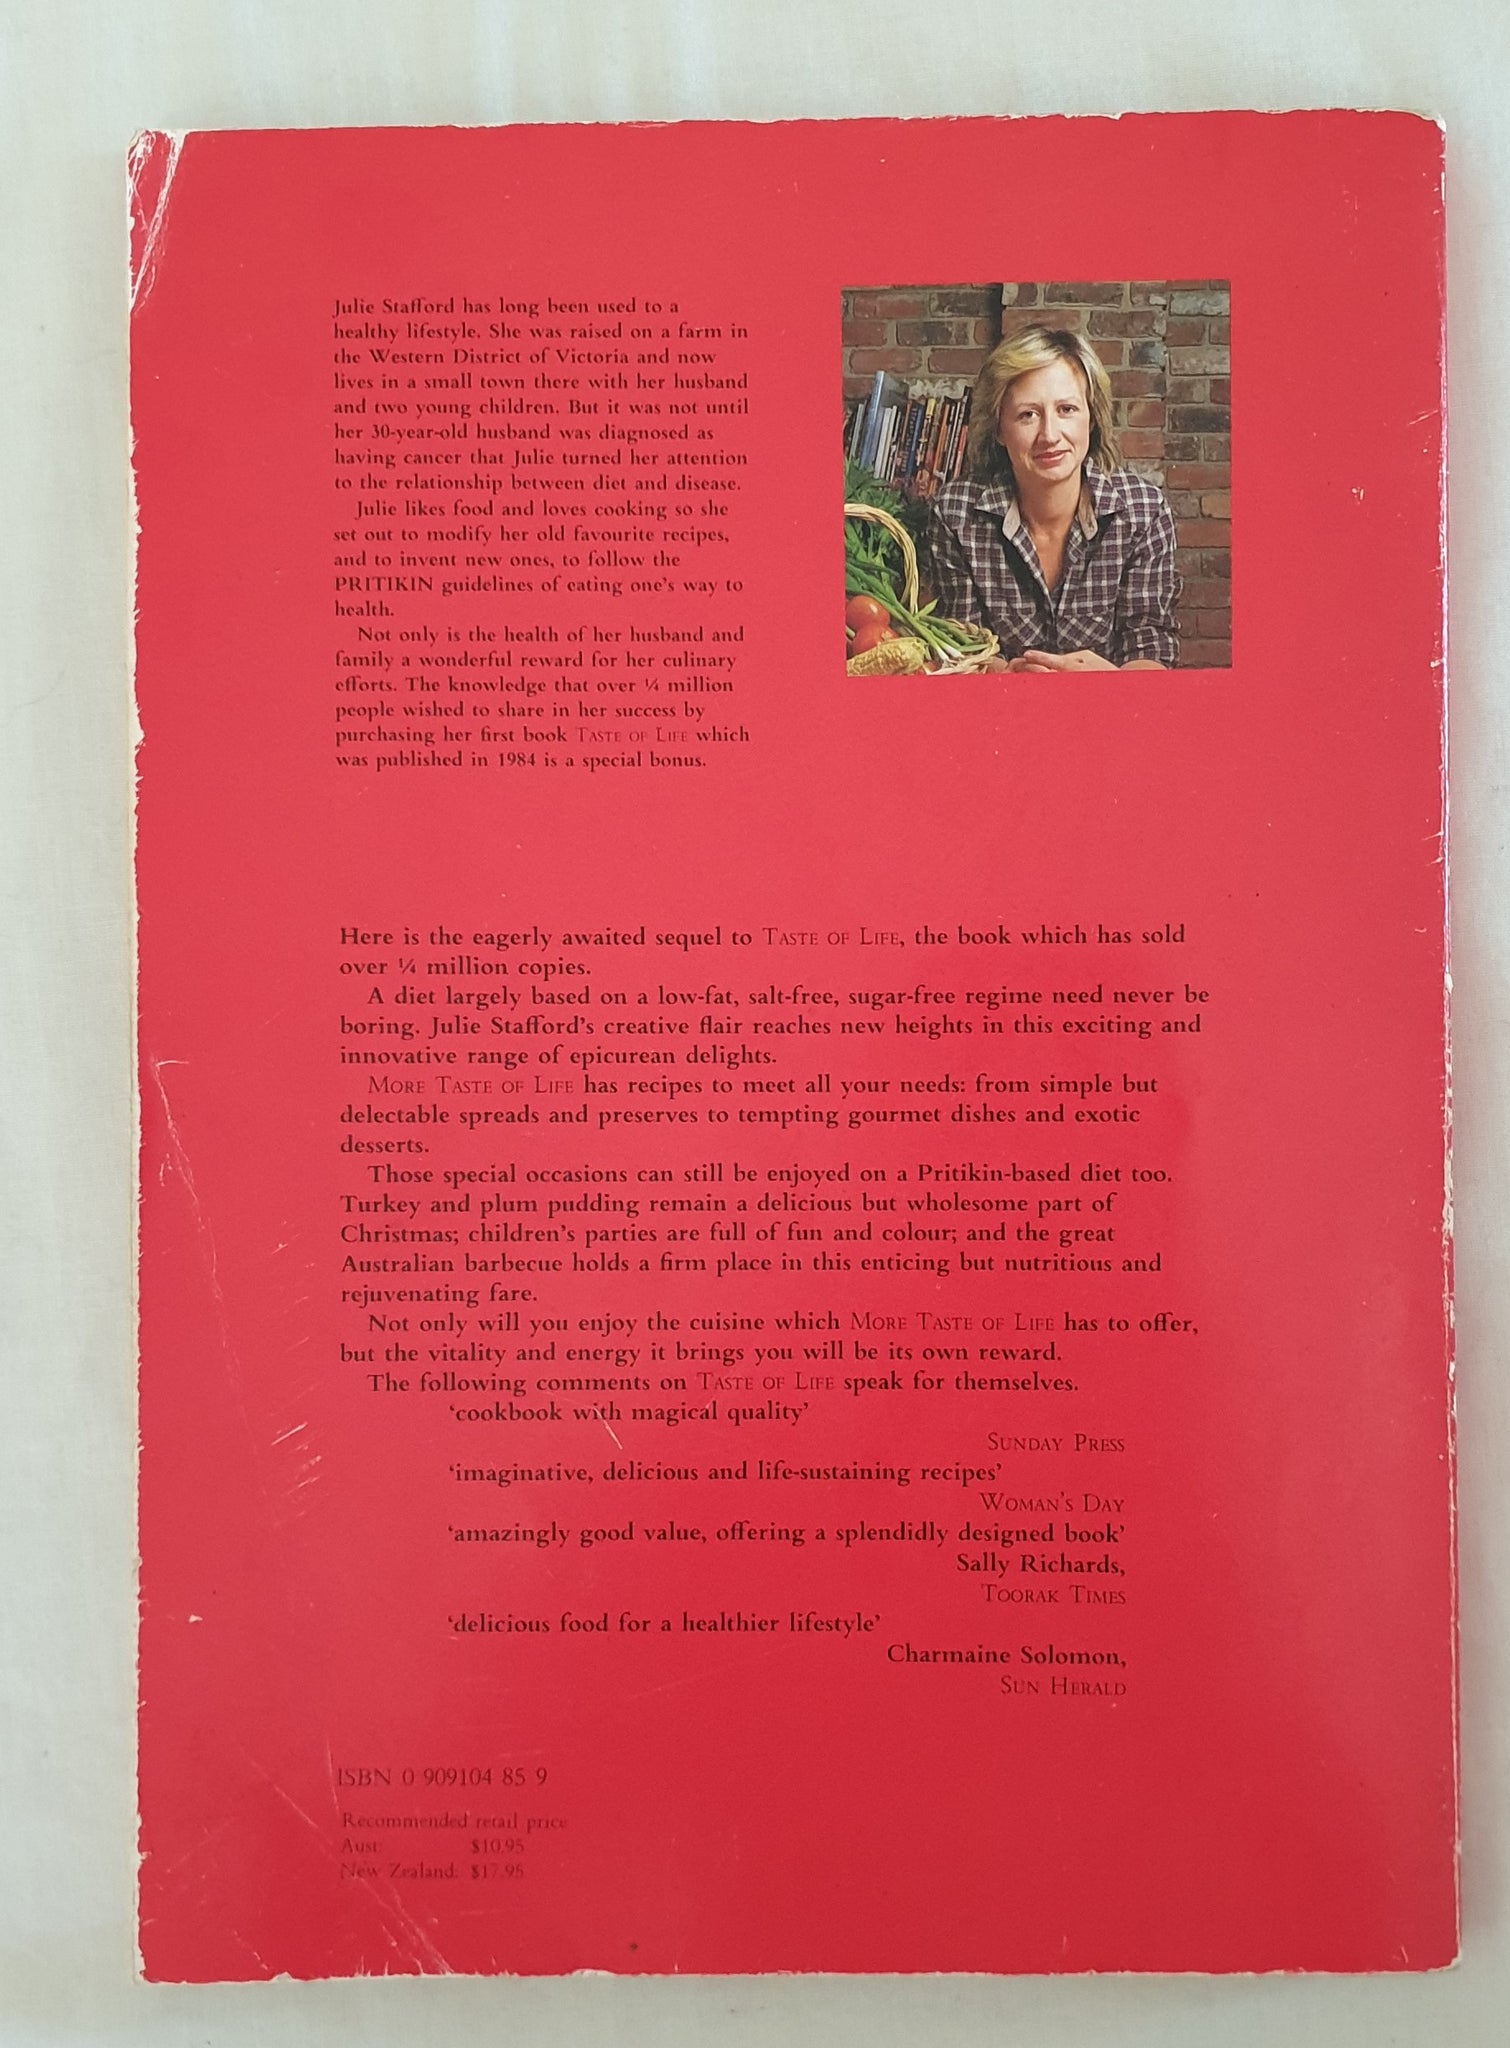 Julie Stafford has long been used to a
healthy lifestyle. She was raised on a farm in
the Western District of Victoria and now
lives in a small town there with her husband
and two young children. But it was not until
her 30-year-old husband was diagnosed as
having cancer that Julie turned her attention
to the relationship between diet and disease.
Julie likes food and loves cooking so she
set out to modify her old favourite recipes,
and to invent new ones, to follow the
PRITIKIN guidelines of eating one's way to
health.
Not only is the health of her husband and
family a wonderful reward for her culinary
efforts. The knowledge that over ¼ million
people wished to share in her success by
purchasing her first book TASTE OF LIFE which
was published in 1984 is a special bonus.
Here is the eagerly awaited sequel to TASTE OF LIFE, the book which has sold
over ¼ million copies.
A diet largely based on a low-fat, salt-free, sugar-free regime need never be
boring. Julie Stafford's creative flair reaches new heights in this exciting and
innovative range of epicurean delights.
MORE TASTE OF LIFE has recipes to meet all your needs: from simple but
delectable spreads and preserves to tempting gourmet dishes and exotic
desserts.
Those special occasions can still be enjoyed on a Pritikin-based diet too.
Turkey and plum pudding remain a delicious but wholesome part of
Christmas; children's parties are full of fun and colour; and the great
Australian barbecue holds a firm place in this enticing but nutritious and
rejuvenating fare.
Not only will you enjoy the cuisine which MORE TASTE OF LIFE has to offer,
but the vitality and energy it brings you will be its own reward.
The following comments on TASTE OF LIFE speak for themselves.
'cookbook with magical quality'
SUNDAY PRESS
'imaginative, delicious and life-sustaining recipes'
WOMAN'S DAY
'amazingly good value, offering a splendidly designed book'
Sally Richards,
TOORAK TIMES
'delicious food for a healthier lifestyle'
Charmaine Solomon,
SUN HERALD
ISBN 0 909104 85 9
Recommended retail price
Aust: $10.95
New Zealand: $17.95